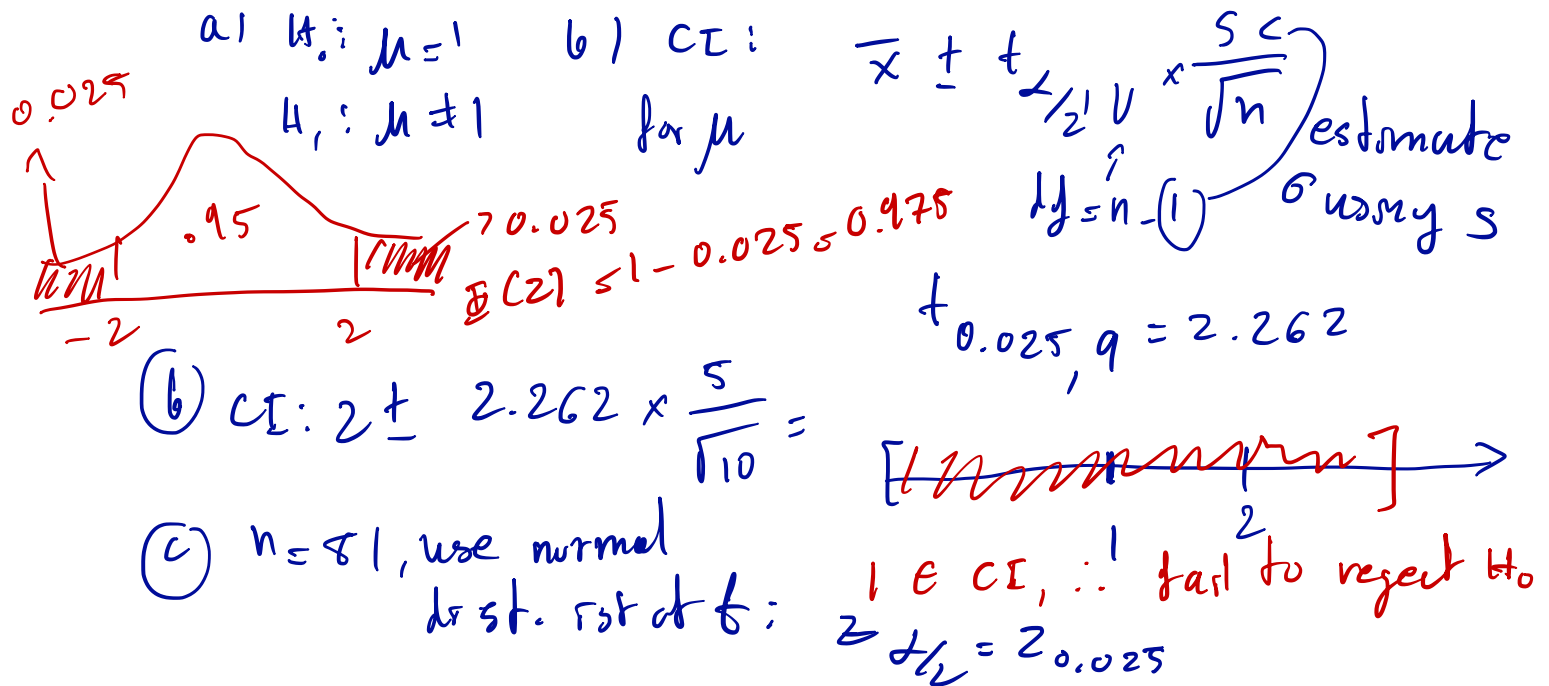 a) H₀: μ = 1
H₁: μ ≠ 1
b) CI: x̄ ± t α/2, ν × s / √n
for μ
df = n - 1
estimate
σ using s
0.025
.95
0.025
Φ(z) = 1 - 0.025 = 0.975
-z
z
t 0.025, 9 = 2.262
(b) CI: 2 ± 2.262 × 5 / √10 =
[ ]
1
2
1 ∈ CI, ∴ fail to reject H₀
(c) n = 81, use normal
dist. inst of t:
z α/2 = z 0.025